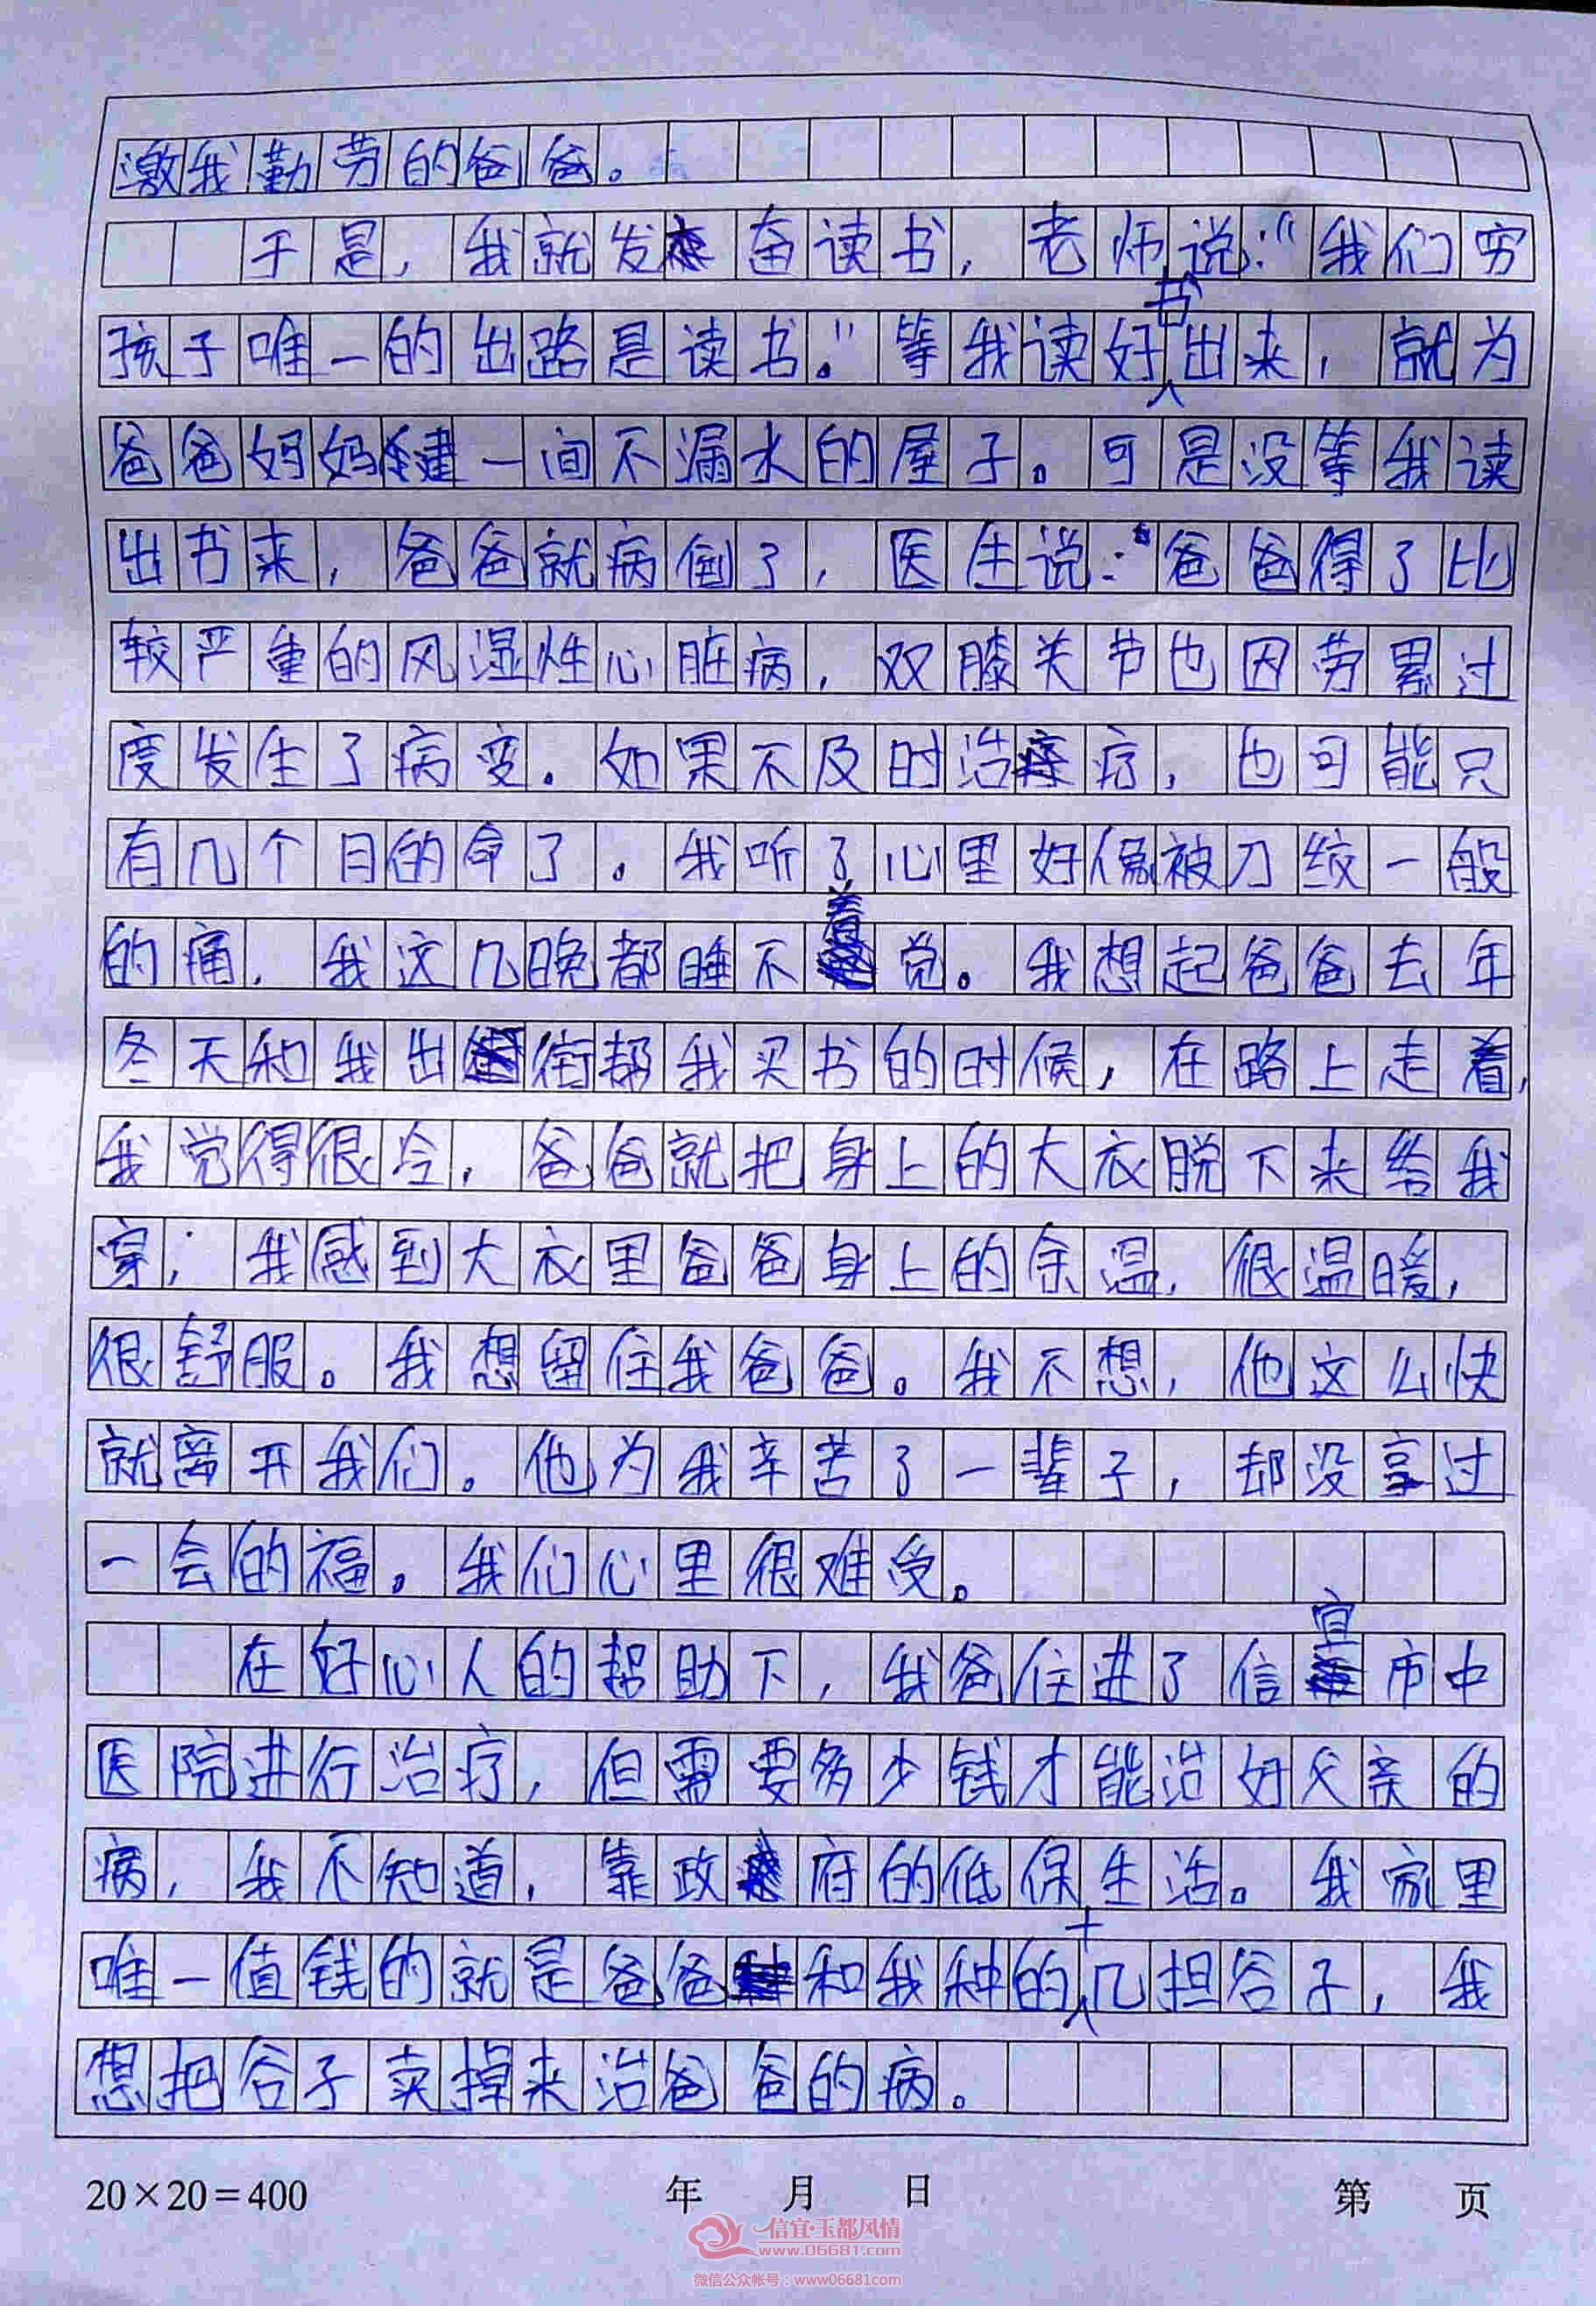 激我勤劳的爸爸。
于是,我就发奋读书,老师说:"我们穷
孩子唯一的出路是读书。"等我读好书出来,就为
爸爸妈妈建一间不漏水的屋子。可是没等我读
出书来,爸爸就病倒了,医生说:"爸爸得了比
较严重的风湿性心脏病,双膝关节也因劳累过
度发生了病变。如果不及时治疗,也可能只
有几个月的命了。我听了心里好像被刀绞一般
的痛,我这几晚都睡不着觉。我想起爸爸去年
冬天和我出街帮我买书的时候,在路上走着,
我觉得很冷,爸爸就把身上的大衣脱下来给我
穿;我感到大衣里爸爸身上的余温,很温暖,
很舒服。我想留住我爸爸。我不想,他这么快
就离开我们。他为我辛苦了一辈子,却没享过
一会的福。我们心里很难受。
在好心人的帮助下,我爸住进了信宜市中
医院进行治疗,但需要多少钱才能治好父亲的
病,我不知道,靠政府的低保生活。我家里
唯一值钱的就是爸爸和我种的十几担谷子,我
想把谷子卖掉来治爸爸的病。
20×20=400 年 月 日 第 页
信宜·玉都风情
www.06681.com
微信公众帐号:www06681com